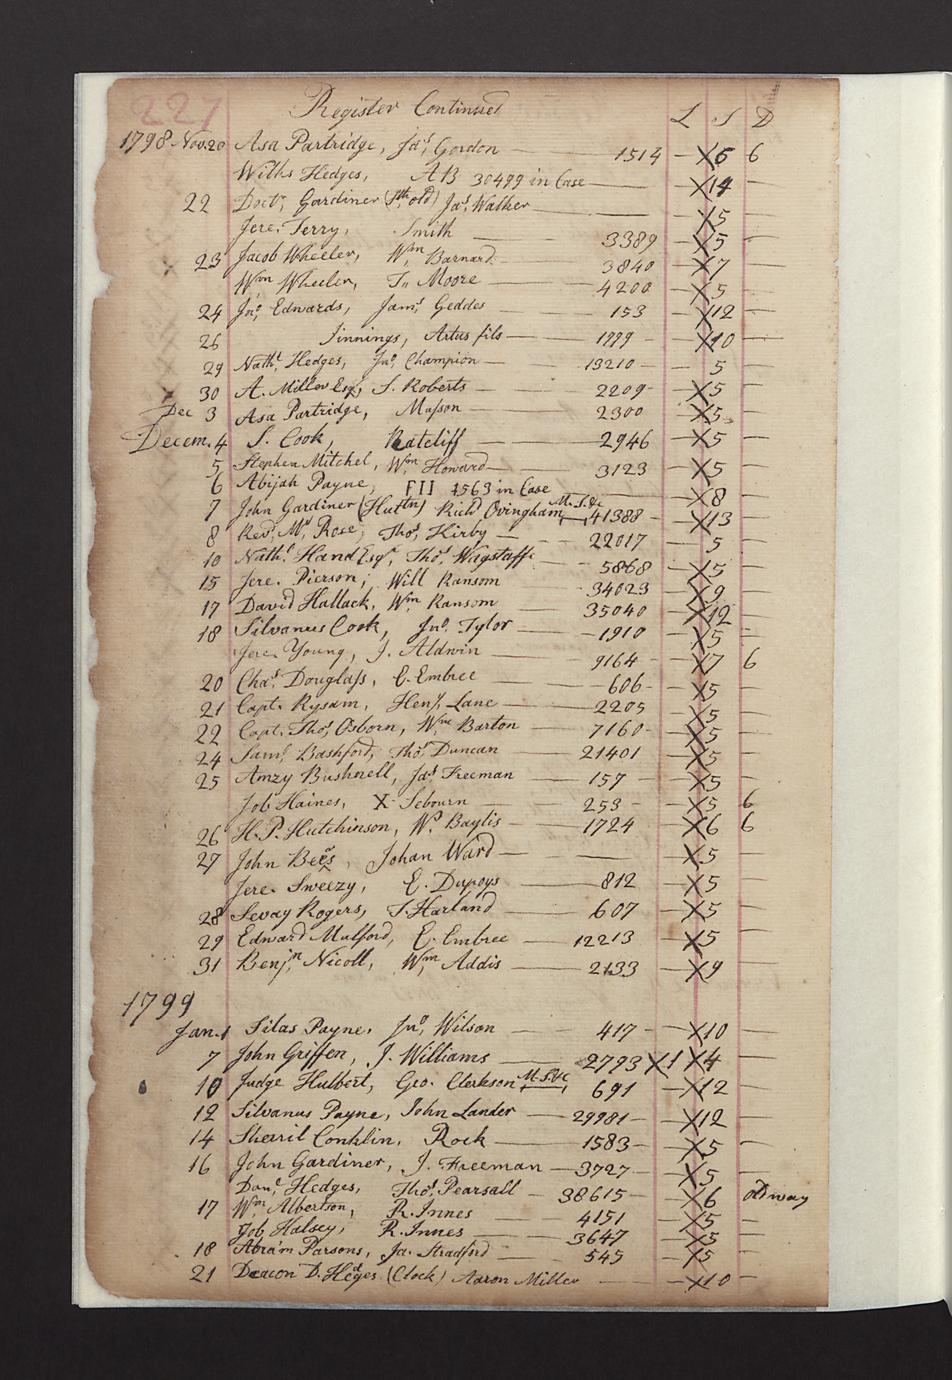 227 Register Continued L S D
1798 Nov. 20 Asa Partridge, Jas. Gordon — 1514 — X6 6
Wilks Hedges, AB 30499 in Case — X14 —
22 Doctr. Gardiner (Sth. old) Jas. Walker — — X5 —
Jere. Terry, Smith — 3389 — X5 —
23 Jacob Wheeler, Wm. Barnard — 3840 — X7 —
Wm Wheeler, Ts. Moore — 4200 — X5 —
24 Jno. Edwards, Jams. Geddes — 153 — X12 —
26 Jinnings, Artus fils — 1999 — X10 —
29 Nathl. Hedges, Jno. Champion — 13210 — 5 —
30 A. Miller Esq, S. Roberts — 2209 — X5 —
Dec 3 Asa Partridge, Mason — 2300 — X5 —
Decem. 4 S. Cook, Ratcliff — 2946 — X5 —
5 Stephen Mitchel, Wm. Howard — 3123 — X5 —
6 Abijah Payne, FII 1563 in Case — X8 —
7 John Gardiner (Huttn) Richd Ovingham M. S. &c 41388 — X13 —
8 Revd. Mr. Rose, Thos. Kirby — 22017 — 5 —
10 Nathl. Hand Esqr. Thos. Wagstaff — 5868 — X5 —
15 Jere. Pierson, Will Ransom 34023 — X9 —
17 David Hallack, Wm. Ransom — 35040 — X12 —
18 Silvanus Cook, Jno. Tylor — 1910 — X5 —
Jere. Young, J. Aldwin — 9164 — X7 6
20 Chas. Douglass, E. Embree — 606 — X5 —
21 Capt. Rysam, Heny. Lane — 2205 — X5 —
22 Capt. Thos. Osborn, Wm. Barton — 7160 — X5 —
24 Saml. Bashford, Thos. Duncan — 21401 — X5 —
25 Amzy Bushnell, Jas. Freeman — 157 — X5 —
Job Haines, X Sebourn — 253 — X5 6
26 H. P. Hutchinson, W. Baylis — 1724 — X6 6
27 John Beers, Johan Ward — — X5 —
Jere. Sweezy, E. Dupoys — 812 — X5 —
28 Sevay Rogers, T. Harland — 607 — X5 —
29 Edward Mulford, E. Embree — 12213 — X5 —
31 Benjn. Nicoll, Wm. Addis — 2133 — X9 —
1799
Jan. 1 Silas Payne, Jno. Wilson — 417 — X10 —
7 John Griffen, J. Williams — 2793 X1 X4 —
10 Judge Hulbert, Geo. Clarkson M. S. &c 691 — X12 —
12 Silvanus Payne, John Lander — 29981 — X12 —
14 Sherril Conklin, Rock — 1583 — X5 —
16 John Gardiner, J. Freeman — 3727 — X5 —
Danl. Hedges, Thos. Pearsall — 38615 — X6 old way
17 Wm. Albertson, R. Innes — 4151 — X5 —
Job Halsey, R. Innes — 3647 — X5 —
18 Abram Parsons, Ja. Stradford — 545 — X5 —
21 Deacon D. Hedges (Clock) Aaron Miller — — X10 —